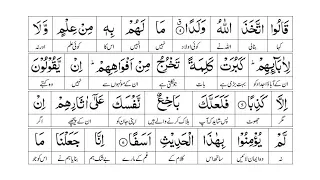 قَالُوا اتَّخَذَ اللّٰهُ وَلَدًا مَا لَهُمْ بِهٖ مِنْ عِلْمٍ وَّلَا
کہا بنالی اللہ نے کوئی اولاد نہیں انہیں اس کا کوئی علم اور نہ
لِاٰبَآىِٕهِمْ كَبُرَتْ كَلِمَةً تَخْرُجُ مِنْ اَفْوَاهِهِمْ اِنْ يَّقُوْلُوْنَ
بہت بڑی ہے بات جو نکلتی ہے ان کے مونہوں سے نہیں وہ کہتے
اِلَّا كَذِبًا فَلَعَلَّكَ بَاخِعٌ نَّفْسَكَ عَلٰٓى اٰثَارِهِمْ اِنْ
مگر جھوٹ پس شاید آپ ہلاک کرنے والے ہیں اپنی جان کو ان کے پیچھے اگر
لَّمْ يُؤْمِنُوْا بِهٰذَا الْحَدِيْثِ اَسَفًا اِنَّا جَعَلْنَا مَا
نہ وہ ایمان لائیں ساتھ اس کلام کے غم کے مارے بے شک ہم بنایا ہم نے اس کو جو